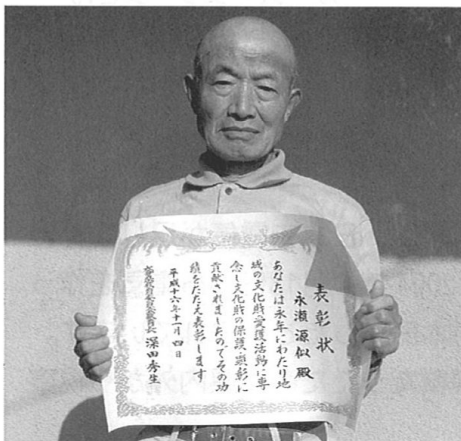 表彰状
永瀬源似殿
あなたは永年にわたり地
域の文化財愛護活動に専
念し文化財の保護顕彰に
貢献されましたのでその功
績をたたえ表彰します
平成十六年十一月四日
深田秀生